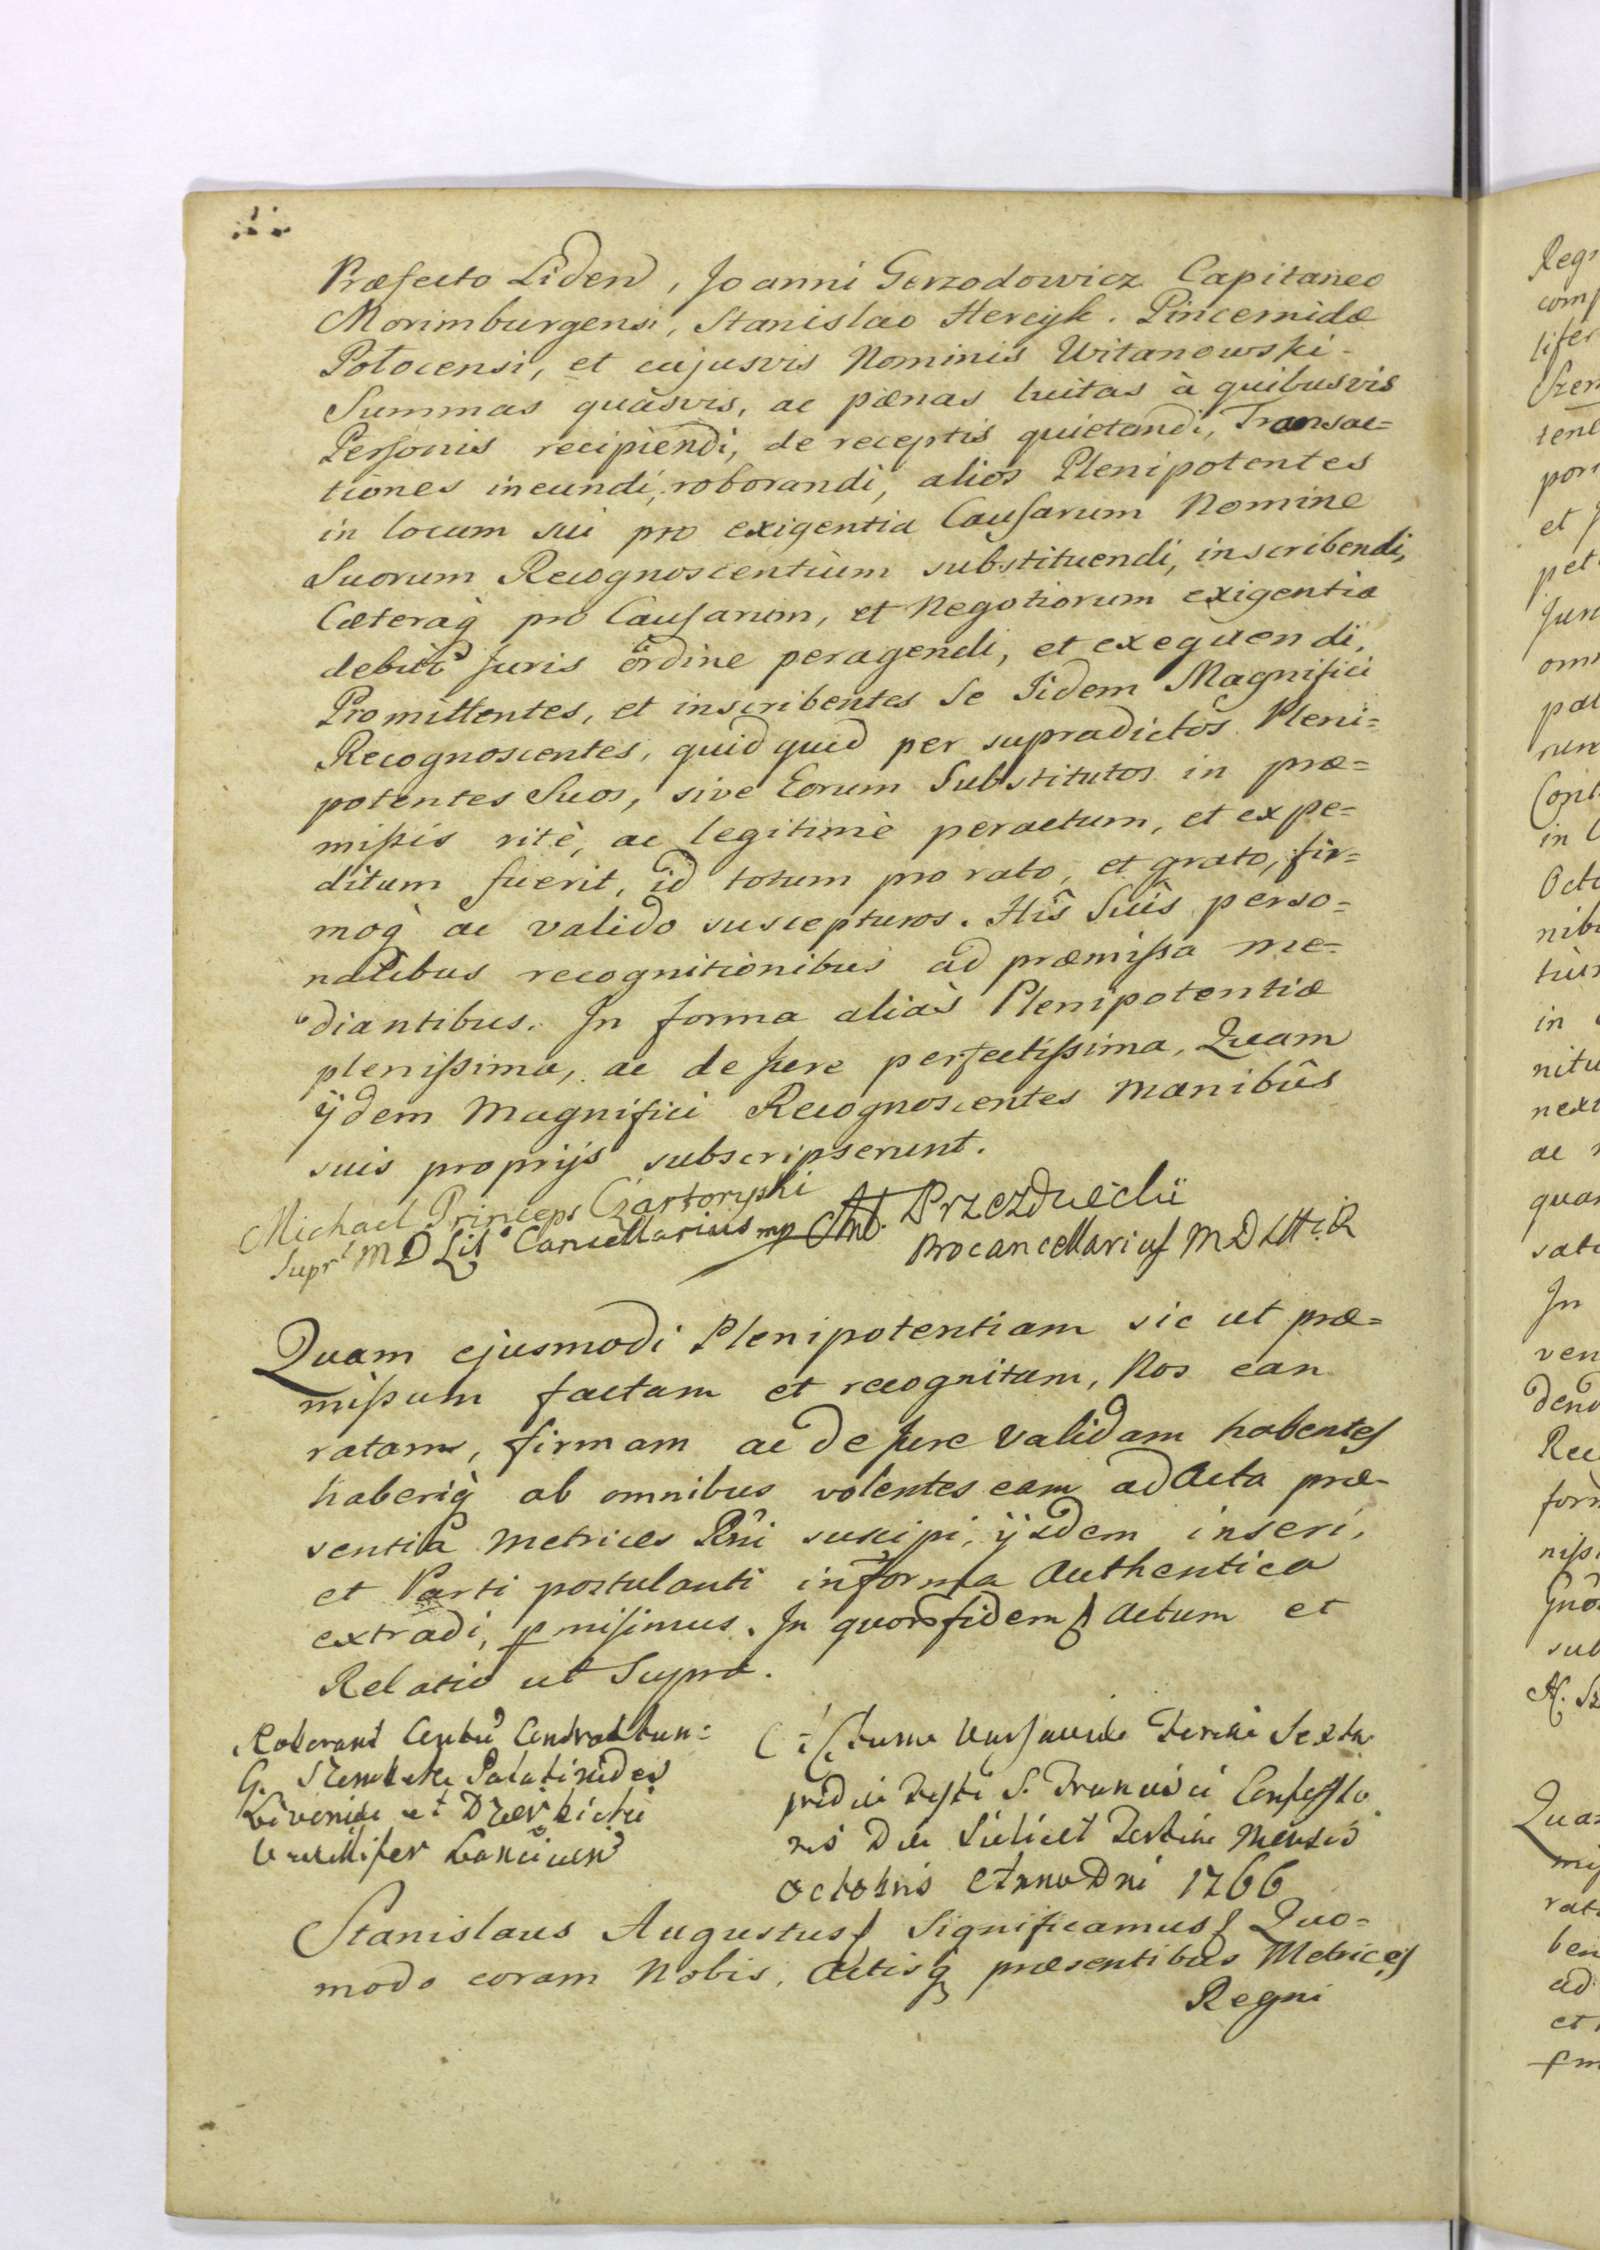 Præfecto Liden, Joanni Gerzodowicz Capitaneo
Morimburgensi, Stanislao Hercyk. Pincernidæ
Połocensi, et cujusvis Nominis Witanowski.
Summas quàsvis, ac pænas luitas à quibusvis
Personis recipiendi, de receptis quietandi, Transac=
tiones ineundi, roborandi, alios Plenipotentes
in locum sui pro exigentia Causarum Nomine
Suorum Recognoscentium substituendi, inscribendi,
Cæteraq̀ pro Causarum, et Negotiorum exigentia
debito Juris ordine peragendi, et exequendi,
Promittentes, et inscribentes Se Iidem Magnifici
Recognoscentes, quidquid per supradictos Pleni=
potentes Suos, sive Eorum Substitutos in præ=
missis ritè, ac legitimè peractum, et expe=
ditum fuerit, id totum pro rato, et grato, fir=
moq̀ ac valido suscepturos. His Suis perso=
nalibus recognitionibus ad præmissa me=
diantibus. In forma aliàs Plenipotentiæ
plenissima, ac de Jure perfectissima, Quam
ÿdem Magnifici Recognoscentes Manibûs
suis proprijs subscripserunt.
Michael Princeps Czartoryski
Supr M D Lit Cancellarius mp
Ant. Przezdziecki
Procancellarius M D Litt
Quam ejusmodi Plenipotentiam sic ut præ=
missum factam et recognitam, Nos eam
ratam, firmam ac de Jure validam habentes
haberiq̀ ab omnibus volentes eam ad Acta præ
sentia Metrices Rni suscipi, ÿsdem inseri,
et Parti postulanti in forma Authentica
extradi, pmisimus. In quor fidem Actum et
Relatio ut Supra.
Roborant
G. Palatinides
Livoniæ et
Vexillifer
Actum Varsaviæ Feria Sexta
pridie Festi S. Francisci Confesso
ris Die Scilicet Tertia Mensis
Octobris Anno Dni 1766
Stanislaus Augustus Significamus Quo=
modo coram Nobis, Actisq̀ præsentibus Metrices
Regni